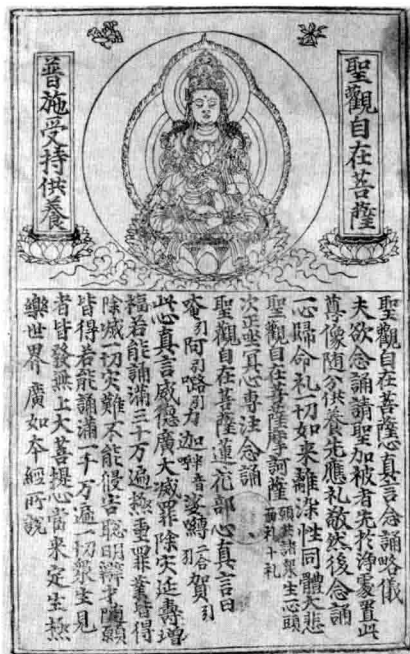 聖觀自在菩薩
普施受持供養
聖觀自在菩薩心真言念誦略儀
夫欲念誦請聖加被者先於淨處置此
尊像随分供養先應礼敬然後念誦
一心歸命礼一切如来離染性同體大悲
聖觀自在菩薩摩訶薩 願共諸衆生心頭面礼十礼
次正坐冥心專注念誦
聖觀自在菩薩蓮花部心真言曰
唵引阿引嚕引力迦半音娑嚩二合賀引
此心真言威德廣大滅罪除灾延壽增
福若能誦滿三十万遍極重罪業皆得
除滅一切灾難不能侵害聡明辯才随願
皆得若能誦滿一千万遍一切衆生見
者皆發無上大菩提心當来定生極
樂世界廣如本經所說